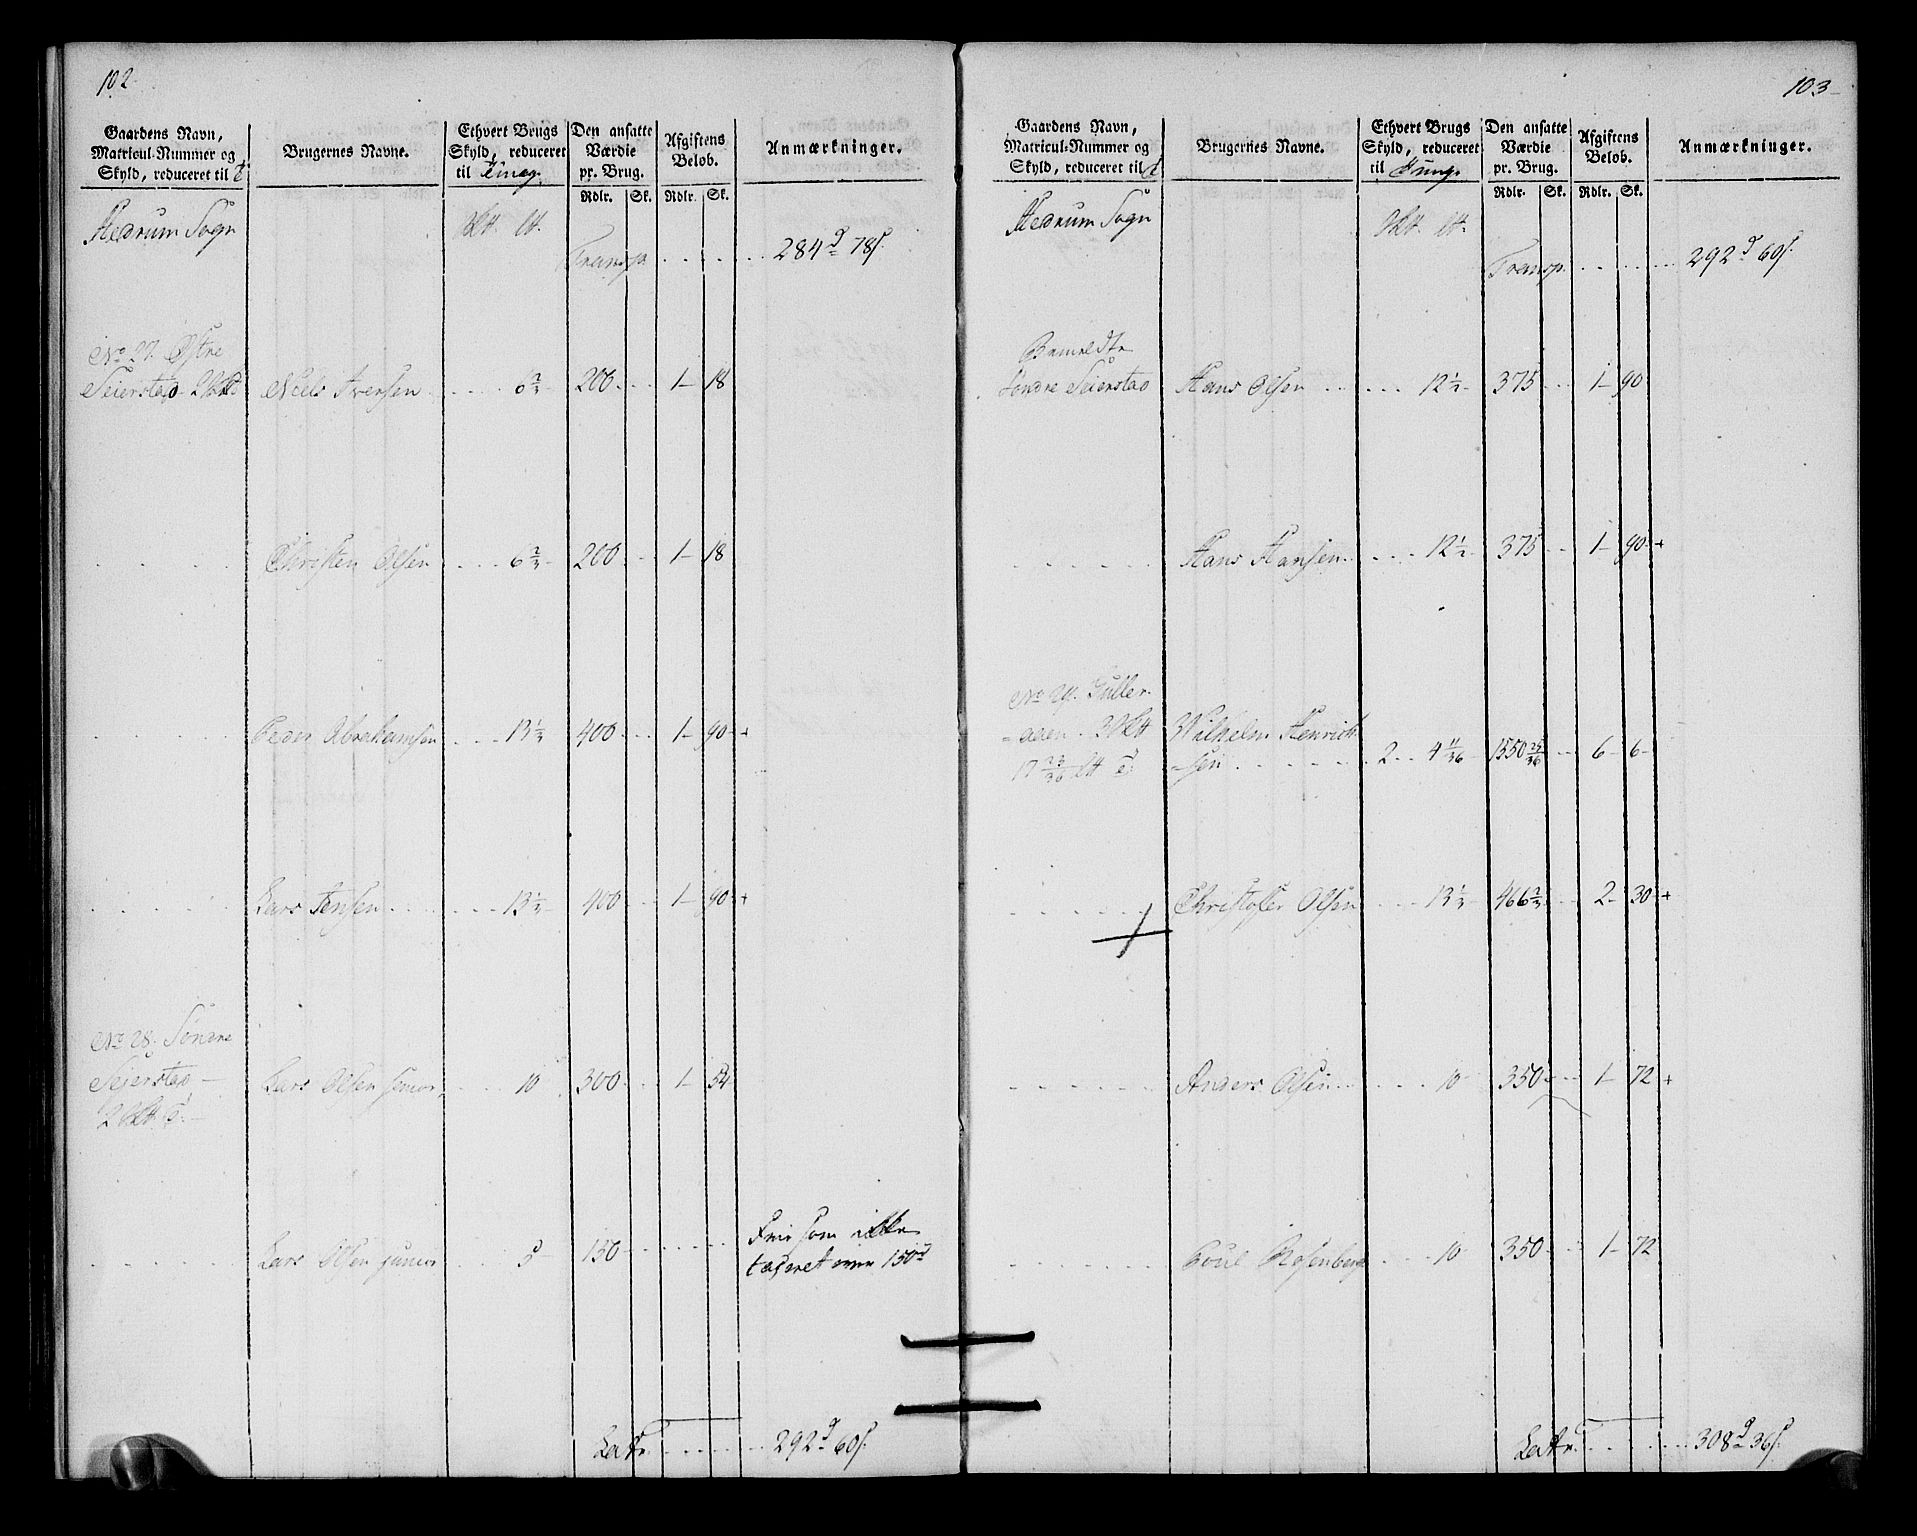 102
Gaardens Navn,
Matricul-Nummer og
Skyld, reduceret til
Brugernes Navne.
Ethvert Brugs
Skyld, reduceret
til Tunge
Den ansatte
Værdie
pr. Brug.
Rdlr. Sk.
Afgiftens
Beløb.
Rdlr. Sk.
Anmærkninger.
Hedrum Sogn
Transp. 284 78
No 27. Østre
Seierstad 2 Niels Iversen 6 2/3 200 1 18
Christen Olsen 6 2/3 200 1 18
Peder Abrahamsen 13 1/3 400 1 90 +
Lars Jensen 13 1/3 400 1 90 +
No 28. Søndre
Seierstad Lars Olsen senior 10 300 1 54
2
Lars Olsen junior 5 150 Frie som ikke
taxeret over 150
Latr. 292 60
103
Gaardens Navn,
Matricul-Nummer og
Skyld, reduceret til
Brugernes Navne.
Ethvert Brugs
Skyld, reduceret
til Tunge
Den ansatte
Værdie
pr. Brug.
Rdlr. Sk.
Afgiftens
Beløb.
Rdlr. Sk.
Anmærkninger.
Hedrum Sogn
Transp. 292 60
Bemeldte
Søndre Seierstad Hans Olsen 12 1/2 375 1 90
Hans Hansen 12 1/2 375 1 90 +
No 29.
Wilhelm Henrich-
sen 2 4 11/36 1550 25/36 6 6
Christoffer Olsen 13 1/3 466 2/3 2 30 +
Anders Olsen 10 350 1 72 +
Poul Rosenberg 10 350 1 72
Latr. 308 36